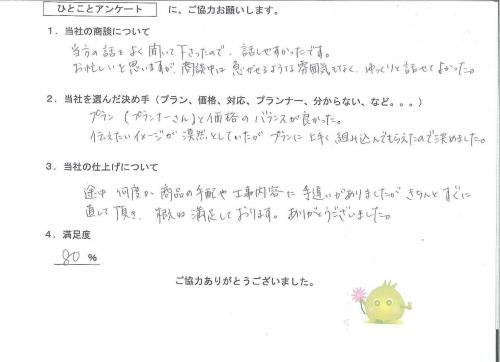 ひとことアンケート に、ご協力お願いします。
1．当社の商談について
当方の話をよく聞いて下さったので、話しやすかったです。
お忙しいと思いますが、商談中は急がせるような雰囲気もなく、ゆっくりと話せてよかった。
2．当社を選んだ決め手（プラン、価格、対応、プランナー、分からない、など。。。）
プラン（プランナーさん）と価格のバランスが良かった。
伝えたいイメージが漠然としていたがプランに上手く組み込んでもらえたので決めました。
3．当社の仕上げについて
途中何度か商品の手配や工事内容に手違いがありましたがきちんとすぐに
直して頂き、概ね満足しております。ありがとうございました。
4．満足度
80 %
ご協力ありがとうございました。